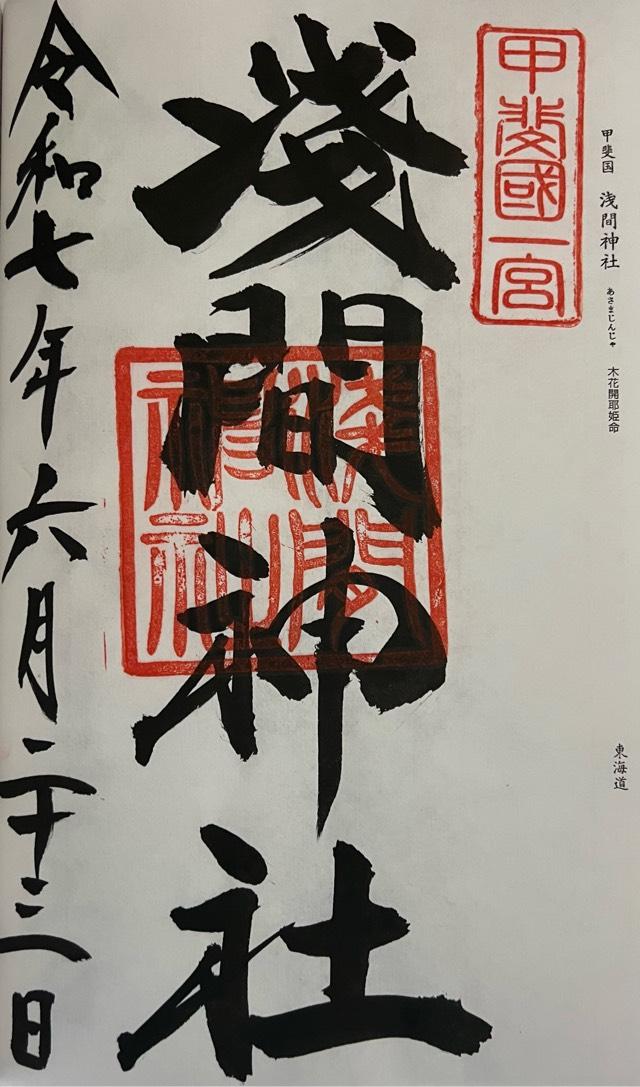 甲斐国 浅間神社 あさまじんじゃ 木花開耶姫命
東海道
甲斐國一宮
淺間神社
淺間
神社
令和七年六月二十三日